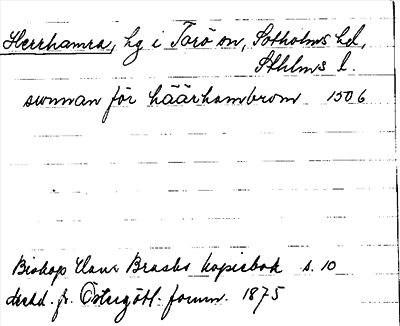 Herrhamra, hg i Torö sn, Sotholms hd,
Sthlms l.
sunnan för häärhambrom 1506
Biskop Hans Brasks kopiebok s. 10
 fr. Östergötl. fornm. 1875